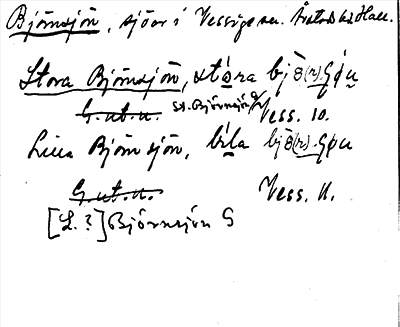 Björnsjön, sjöar i Vessige sn. Årstads hd Hall.
Stora Björnsjön, stóra
G. ut. u. St. Björnsjön Vess. 10.
Lilla Björnsjön, lila
G. ut. u. Vess. 11.
[L. ?] Björnsjön G